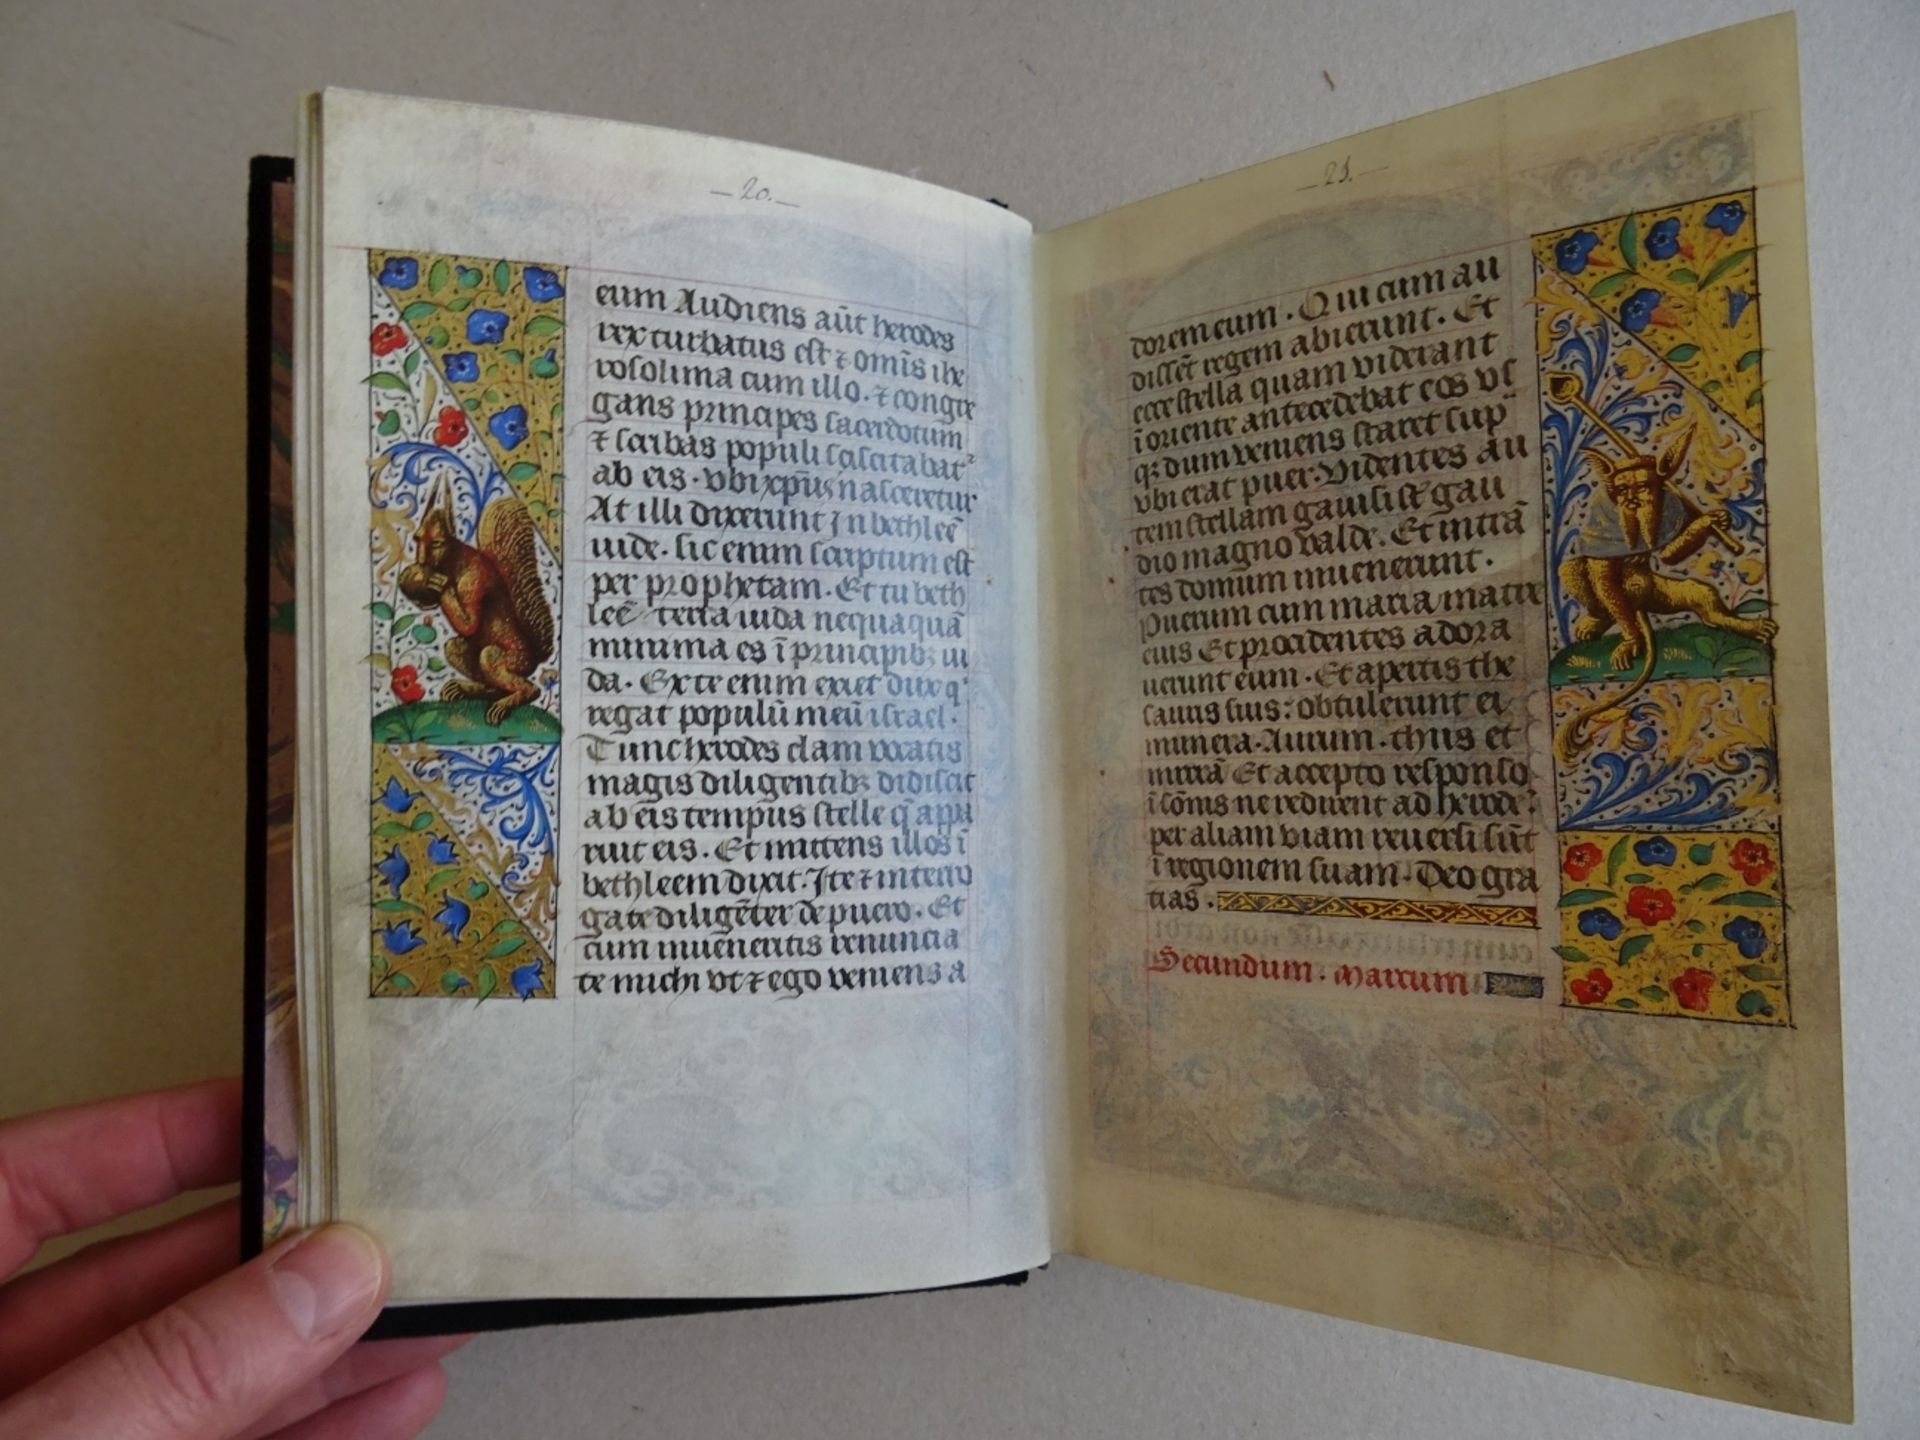 — 20. —
eum Audiens aūt herodes
rex turbatus est ⁊ om̄is ihe
rosolima cum illo. ⁊ congre
gans principes sacerdotum
⁊ scribas populi sciscitabat᷑
ab eis. vbi xp̄us nasceretur
At illi dixerunt Jn bethleē
iude. sic enim scriptum est
per prophetam. Et tu beth
leē terra iuda nequaquā
minima es ī principibꝫ iu
da. Ex te enim exiet dux q
regat populū meū israel.
Tunc herodes clam vocatis
magis diligentibꝫ didiscit
ab eis tempus stelle q̄ appa
ruit eis. Et mittens illos ī
bethleem dixit. Jte ⁊ interro
gate diligēter de puero. Et
cum inueneritis renuncia
te michi vt ⁊ ego veniens a
— 21. —
dorem eum. Qui cum au
dissēt regem abierunt. Et
ecce stella quam viderant
ī oriente antecedebat eos vs
qꝫ dum veniens staret sup
vbi erat puer. Videntes au
tem stellam gauisi sūt gau
dio magno valde. Et intrā
tes domum inuenerunt.
Puerum cum maria matre
eius Et procidentes adora
uerunt eum. Et apertis the
sauris suis: obtulerunt ei
munera. Aurum. thus et
mirrā Et accepto responso
ī sōnis ne redirent ad herode
per aliam viam reuersi sūt
ī regionem suam. Deo gra
tias.
Secundum. Marcum